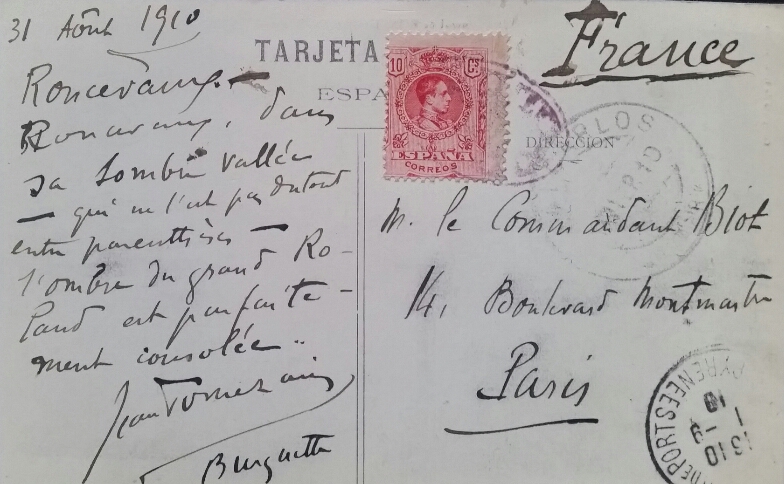 31 Août 1910
Roncevaux.
Roncevaux, dans
sa sombre vallée
— qui ne l'est pas du tout
entre parenthèses —
l'ombre du grand Ro-
land est parfaite-
ment consolée..
Jean
Burguette
TARJETA
ESPA
10 Cs
ESPAÑA
CORREOS
France
DIRECCIÓN
M. le Commandant Biot
14, Boulevard Montmartre
Paris
RLOS
PYRENEES
1 -9
10